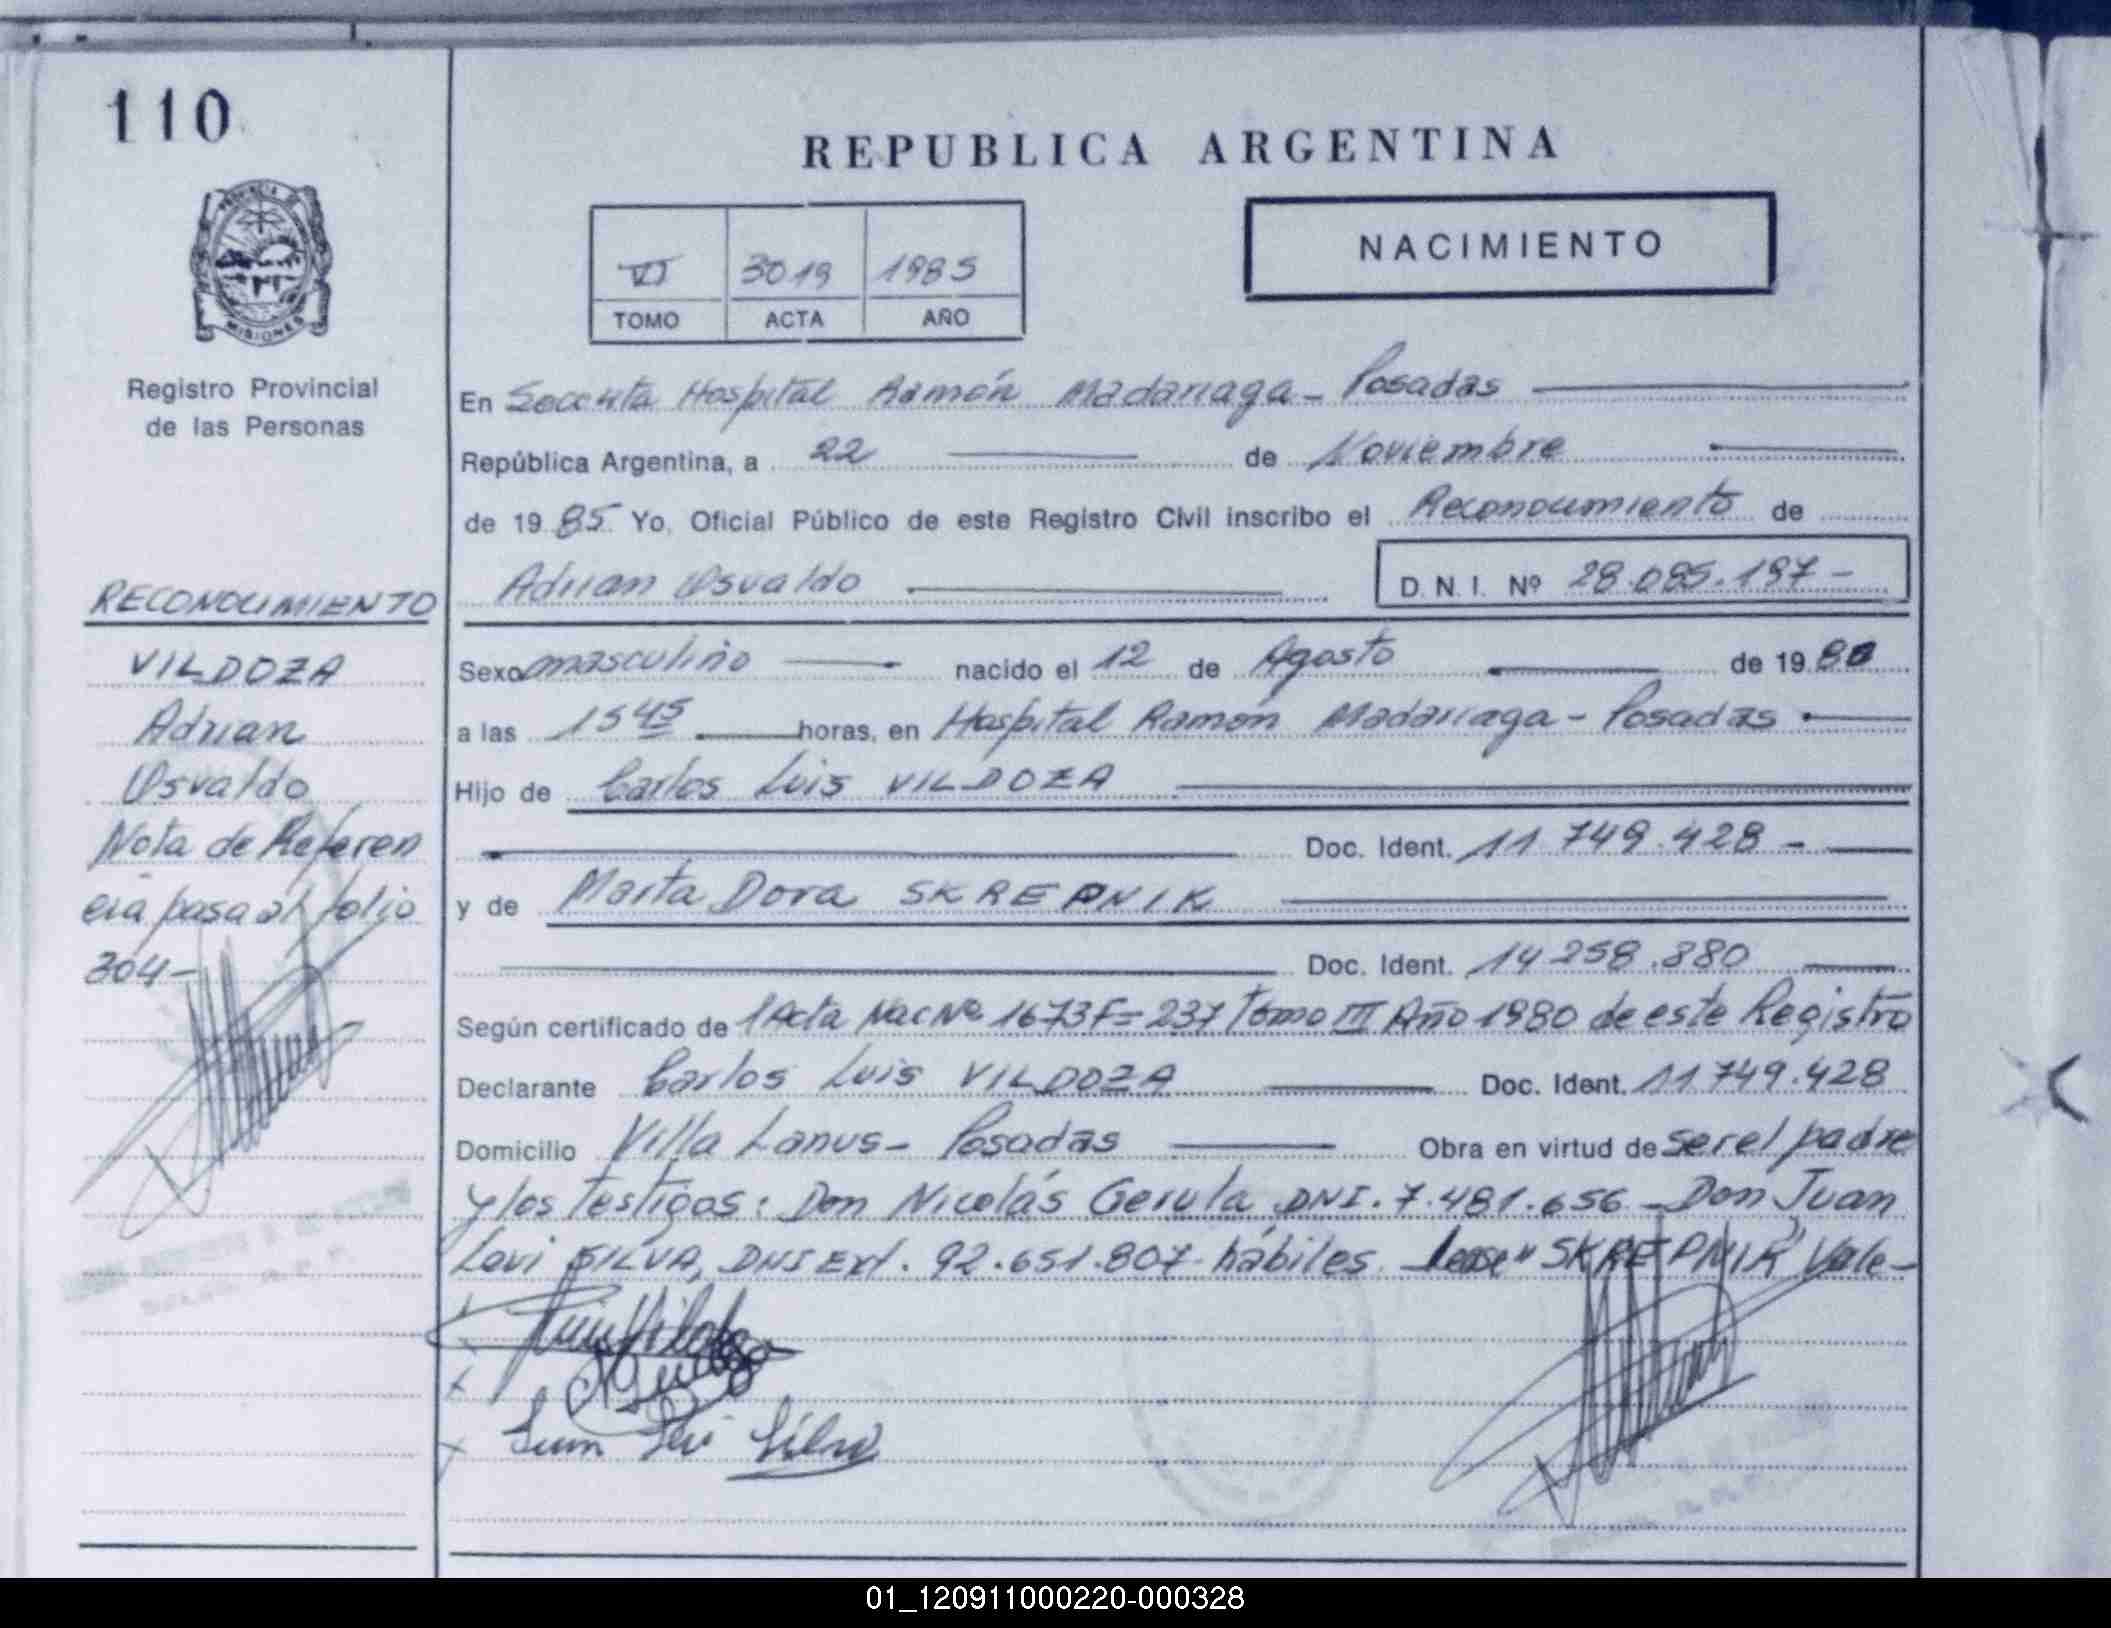 110
REPUBLICA ARGENTINA
NACIMIENTO
VI 3019 1985
TOMO ACTA AÑO
PROVINCIA DE
MISIONES
Registro Provincial
de las Personas
En Hospital Ramón Madariaga - Posadas
República Argentina, a 22 de Noviembre
de 1985 Yo, Oficial Público de este Registro Civil inscribo el Reconocimiento de
Adrian Osvaldo D.N.I. Nº 28.085.197-
RECONOCIMIENTO
VILDOZA
Adrian
Osvaldo
Nota de Referen
cia pasa al folio
304-
Sexo masculino nacido el 12 de Agosto de 1980
a las 15 45 horas, en Hospital Ramón Madariaga - Posadas
Hijo de Carlos Luis VILDOZA
Doc. Ident. 11.749.428-
y de Marta Dora SKREPNIK
Doc. Ident. 14.258.880
Según certificado de Acta Nac Nº 1673 F= 237 Tomo III Año 1980 de este Registro
Declarante Carlos Luis VILDOZA Doc. Ident. 11.749.428
Domicilio Villa Lanus - Posadas Obra en virtud de ser el padre
y los testigos: Don Nicolás Gerula DNI. 7.481.656 - Don Juan
Lovi SILVA, DNI Ext. 92.651.807 hábiles. "SKREPNIK" Vale-
Silva
01_120911000220-000328